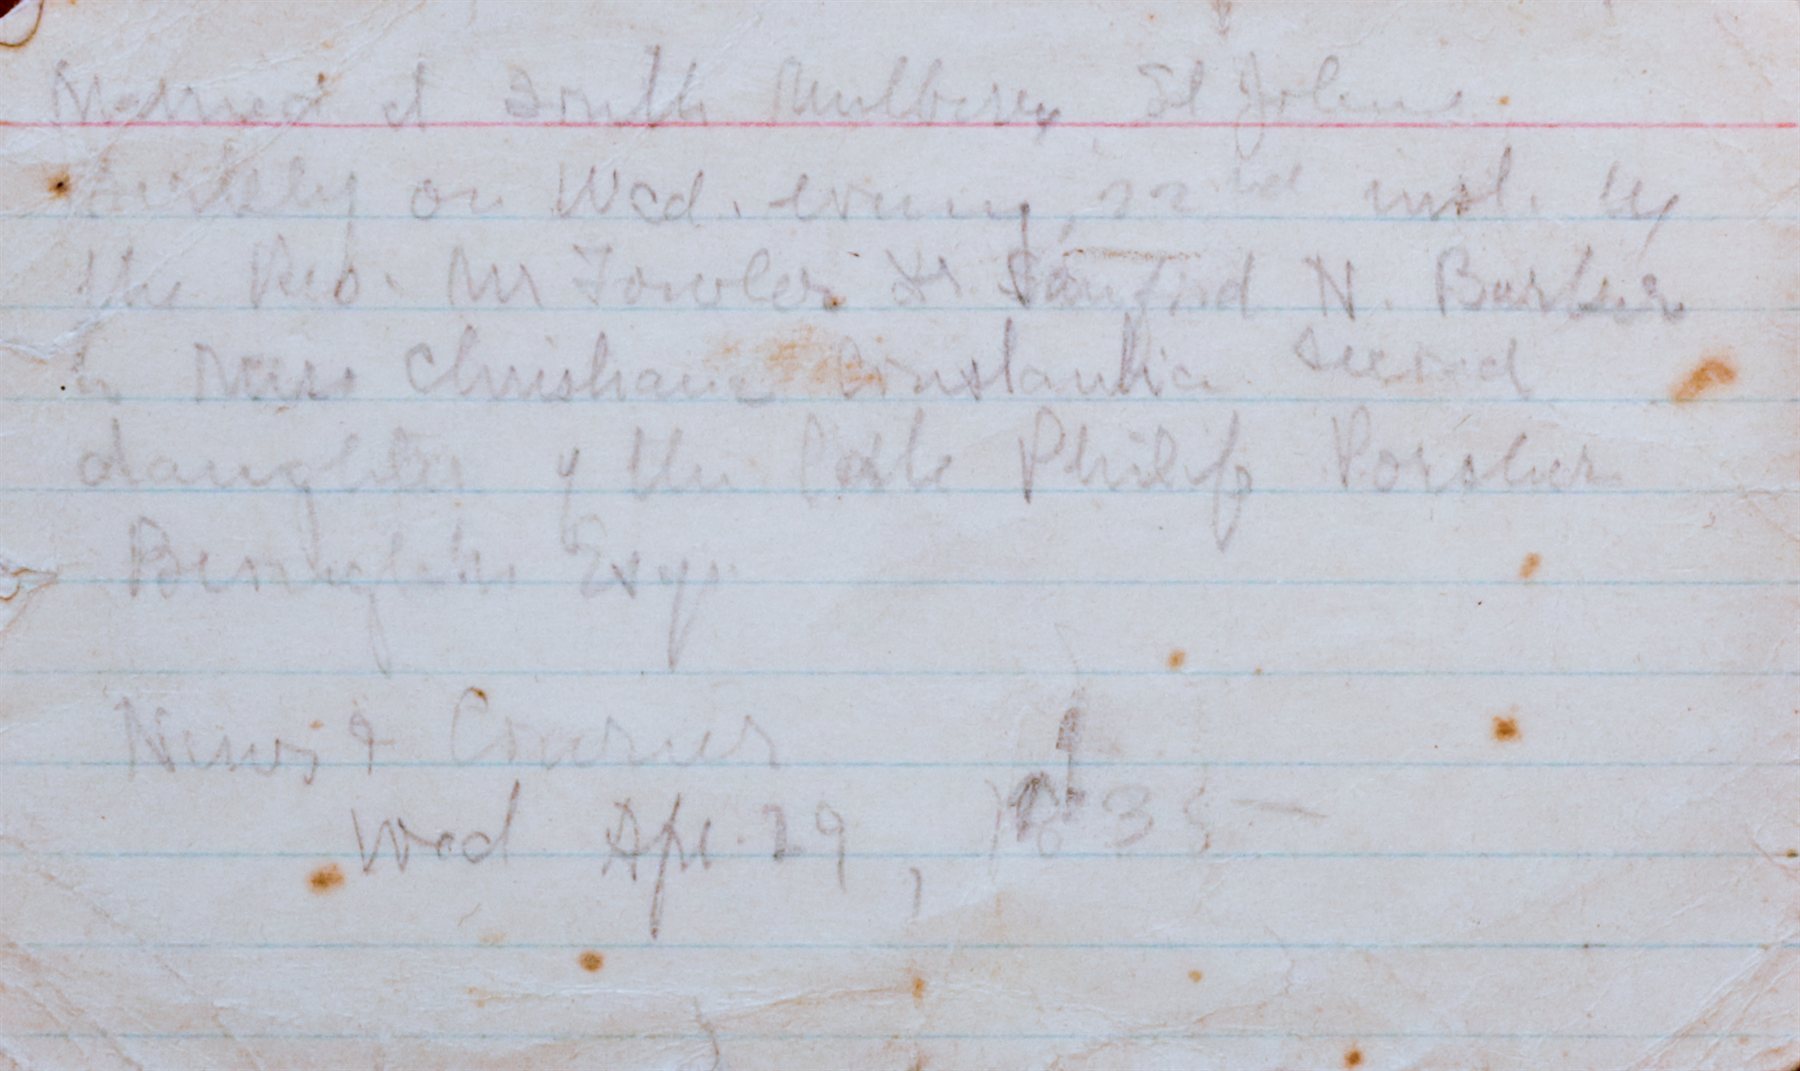 Married at South Mulberry, St Johns
Berkely on Wed. evening, 22nd inst. by
the Rev. Mr Fowler Dr. Sanford N. Barker
to Miss Christiana Constantia second
daughter of the late Philip Porcher
Esqr
News & Courier
Wed Apr. 29, 1835